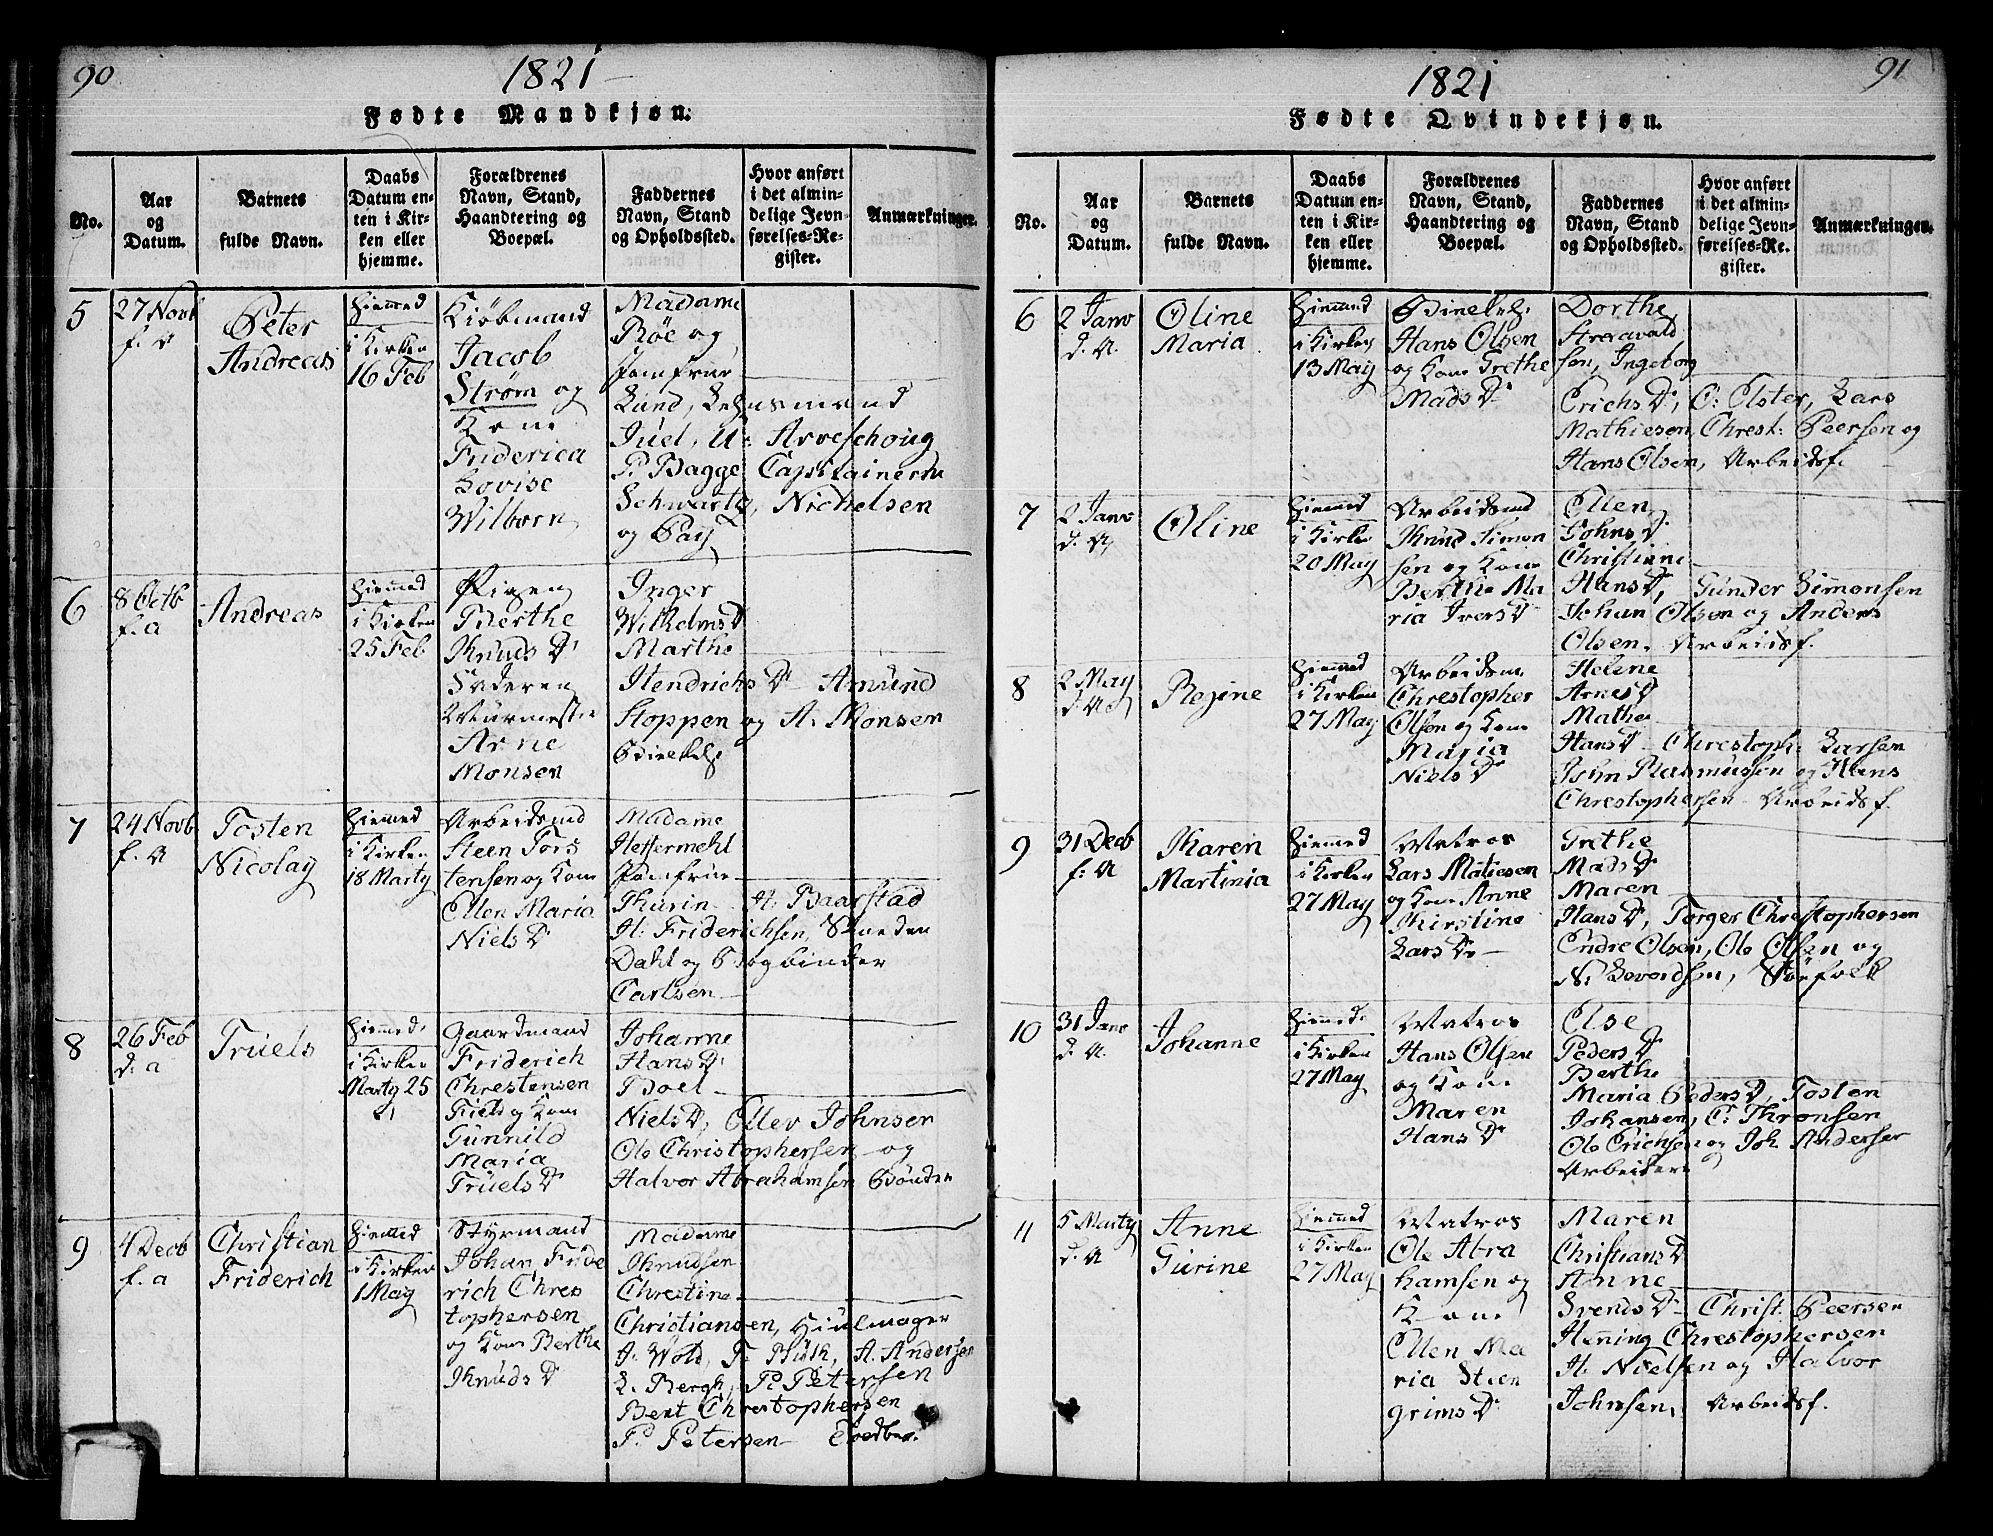 90
1821
Fødte Mandkjøn.
No.
Aar
og
Datum.
Barnets
fulde Navn.
Daabs
Datum en-
ten i Kir-
ken eller
hjemme.
Forældrenes
Navn, Stand,
Haandtering og
Boepæl.
Faddernes
Navn, Stand
og Opholdssted.
Hvor anført
i det almin-
delige Jevn-
førelses-Re-
gister.
Anmærkninger.
5
27 Novb
f. A
Peter
Andreas
Hiemmed
i Kirken
16 Feb
Kiøbmand
Jacob
Strøm og
Kone
Friderica
Lovise
Wilborn
Madame
Bøe og
Jomfrue
Lund,
Juel, A: Aveschoug
P. Bagge Capitainerne
Schwartz, Nichelsen
og Pay
6
8 Octb
f. a
Andreas
Hiemmed
i Kirken
25 Feb
Pigen
Berthe
Knuds D
Faderen
Arne
Monsen
Inger
Wilhelms D
Marthe
Hendrichs D Amund
Stoppen og A. Monsen
7
24 Novb
f. A
Tosten
Nicolay
Hiemmed
i Kirken
18 Marty
Arbeidsmd
Steen Tors
tensen og Kone
Ellen Maria
Niels D
Madame
Heffermehl
Jomfrue
Thurin H. Baarstad
H: Friderichsen,
Dahl og Bogbinder
Carlsen
8
26 Feb
d. a
Truels
Hiemmed
i Kirken
Marty 25
Gaardmand
Friderich
Chrestensen
og Kone
Gunnild
Maria
Truels D
Johanne
Hans D
Boel
Niels D, Ellev Johnsen
Ole Christophersen og
Halvor Abrahamsen Bønder
9
4 Decb
f. a
Christian
Friderich
Hiemmed
i Kirken
1 May
Styrmand
Johan Fride
rich Chres
tophersen
og Kone Berthe
Knuds D
Madame
Knudsen
Chrestine
Christiansen, Hiulmager
J. Wold, T. Busk, A. Andersen
L. Bergh, P. Petersen
Bent Christophersen
P. Petersen
91
1821
Fødte Qvindekjøn.
No.
Aar
og
Datum.
Barnets
fulde Navn.
Daabs
Datum en-
ten i Kir-
ken eller
hjemme.
Forældrenes
Navn, Stand,
Haandtering og
Boepæl.
Faddernes
Navn, Stand
og Opholdssted.
Hvor anført
i det almin-
delige Jevn-
førelses-Re-
gister.
Anmærkninger.
6
2 Janv
d. A.
Oline
Maria
Hiemmed
i Kirken
13 May
Hans Olsen
og Kone Grethe
Mads D
Dorthe
sen, Ingeborg
Erichs D, C: Elster, Lars
Mathiesen, Chrest: Peersen og
Hans Olsen, Arbeidsf.
7
2 Janv
d. A
Oline
Hiemmed
i Kirken
20 May
Arbeidsmd
Knud Simon
sen og Kone
Berthe Ma
ria Ivers D
Ellen
Johns D
Christiane
Hans D, Gunder Simonsen
Johan Olsen og Anders
Olsen, Arbeidsf.
8
2 May
d. A
Regine
Hiemmed
i Kirken
27 May
Arbeidsm
Chrestopher
Olsen og Kone
Maria
Niels D
Helene
Arnes D
Mathe
Hans D Chrestoph: Larsen
John Rasmussen og Hans
Chrestophersen Arbeidsf.
9
31 Decb
f. A
Karen
Martinia
Hiemmed
i Kirken
27 May
Matros
Lars Matiesen
og Kone Anne
Kirstine
Lars D
Grethe
Mads D
Maren
Hans D, Torger Christophersen
Endre Olsen, Ole Olsen og
N. Sevordsen, Søefolk
10
31 Janv
d. A.
Johanne
Hiemmed
i Kirken
27 May
Matros
Hans Olsen
og Kone
Maren
Hans D
Else
Peders D
Berthe
Maria Peders D, Tosten
Johansen, C: Thronsen
Ole Erichsen og Joh Andersen
Arbeidere
11
5 Marty
d. A
Anne
Gurine
Hiemmed
i Kirken
27 May
Matros
Ole Abra
hamsen og
Kone
Ellen Ma
ria Steen
grims D
Maren
Christians D
Anne
Svends D Christ. Peersen
Hening Chrestophersen
H. Nielsen og Halvor
Johnsen, Arbeidsf.